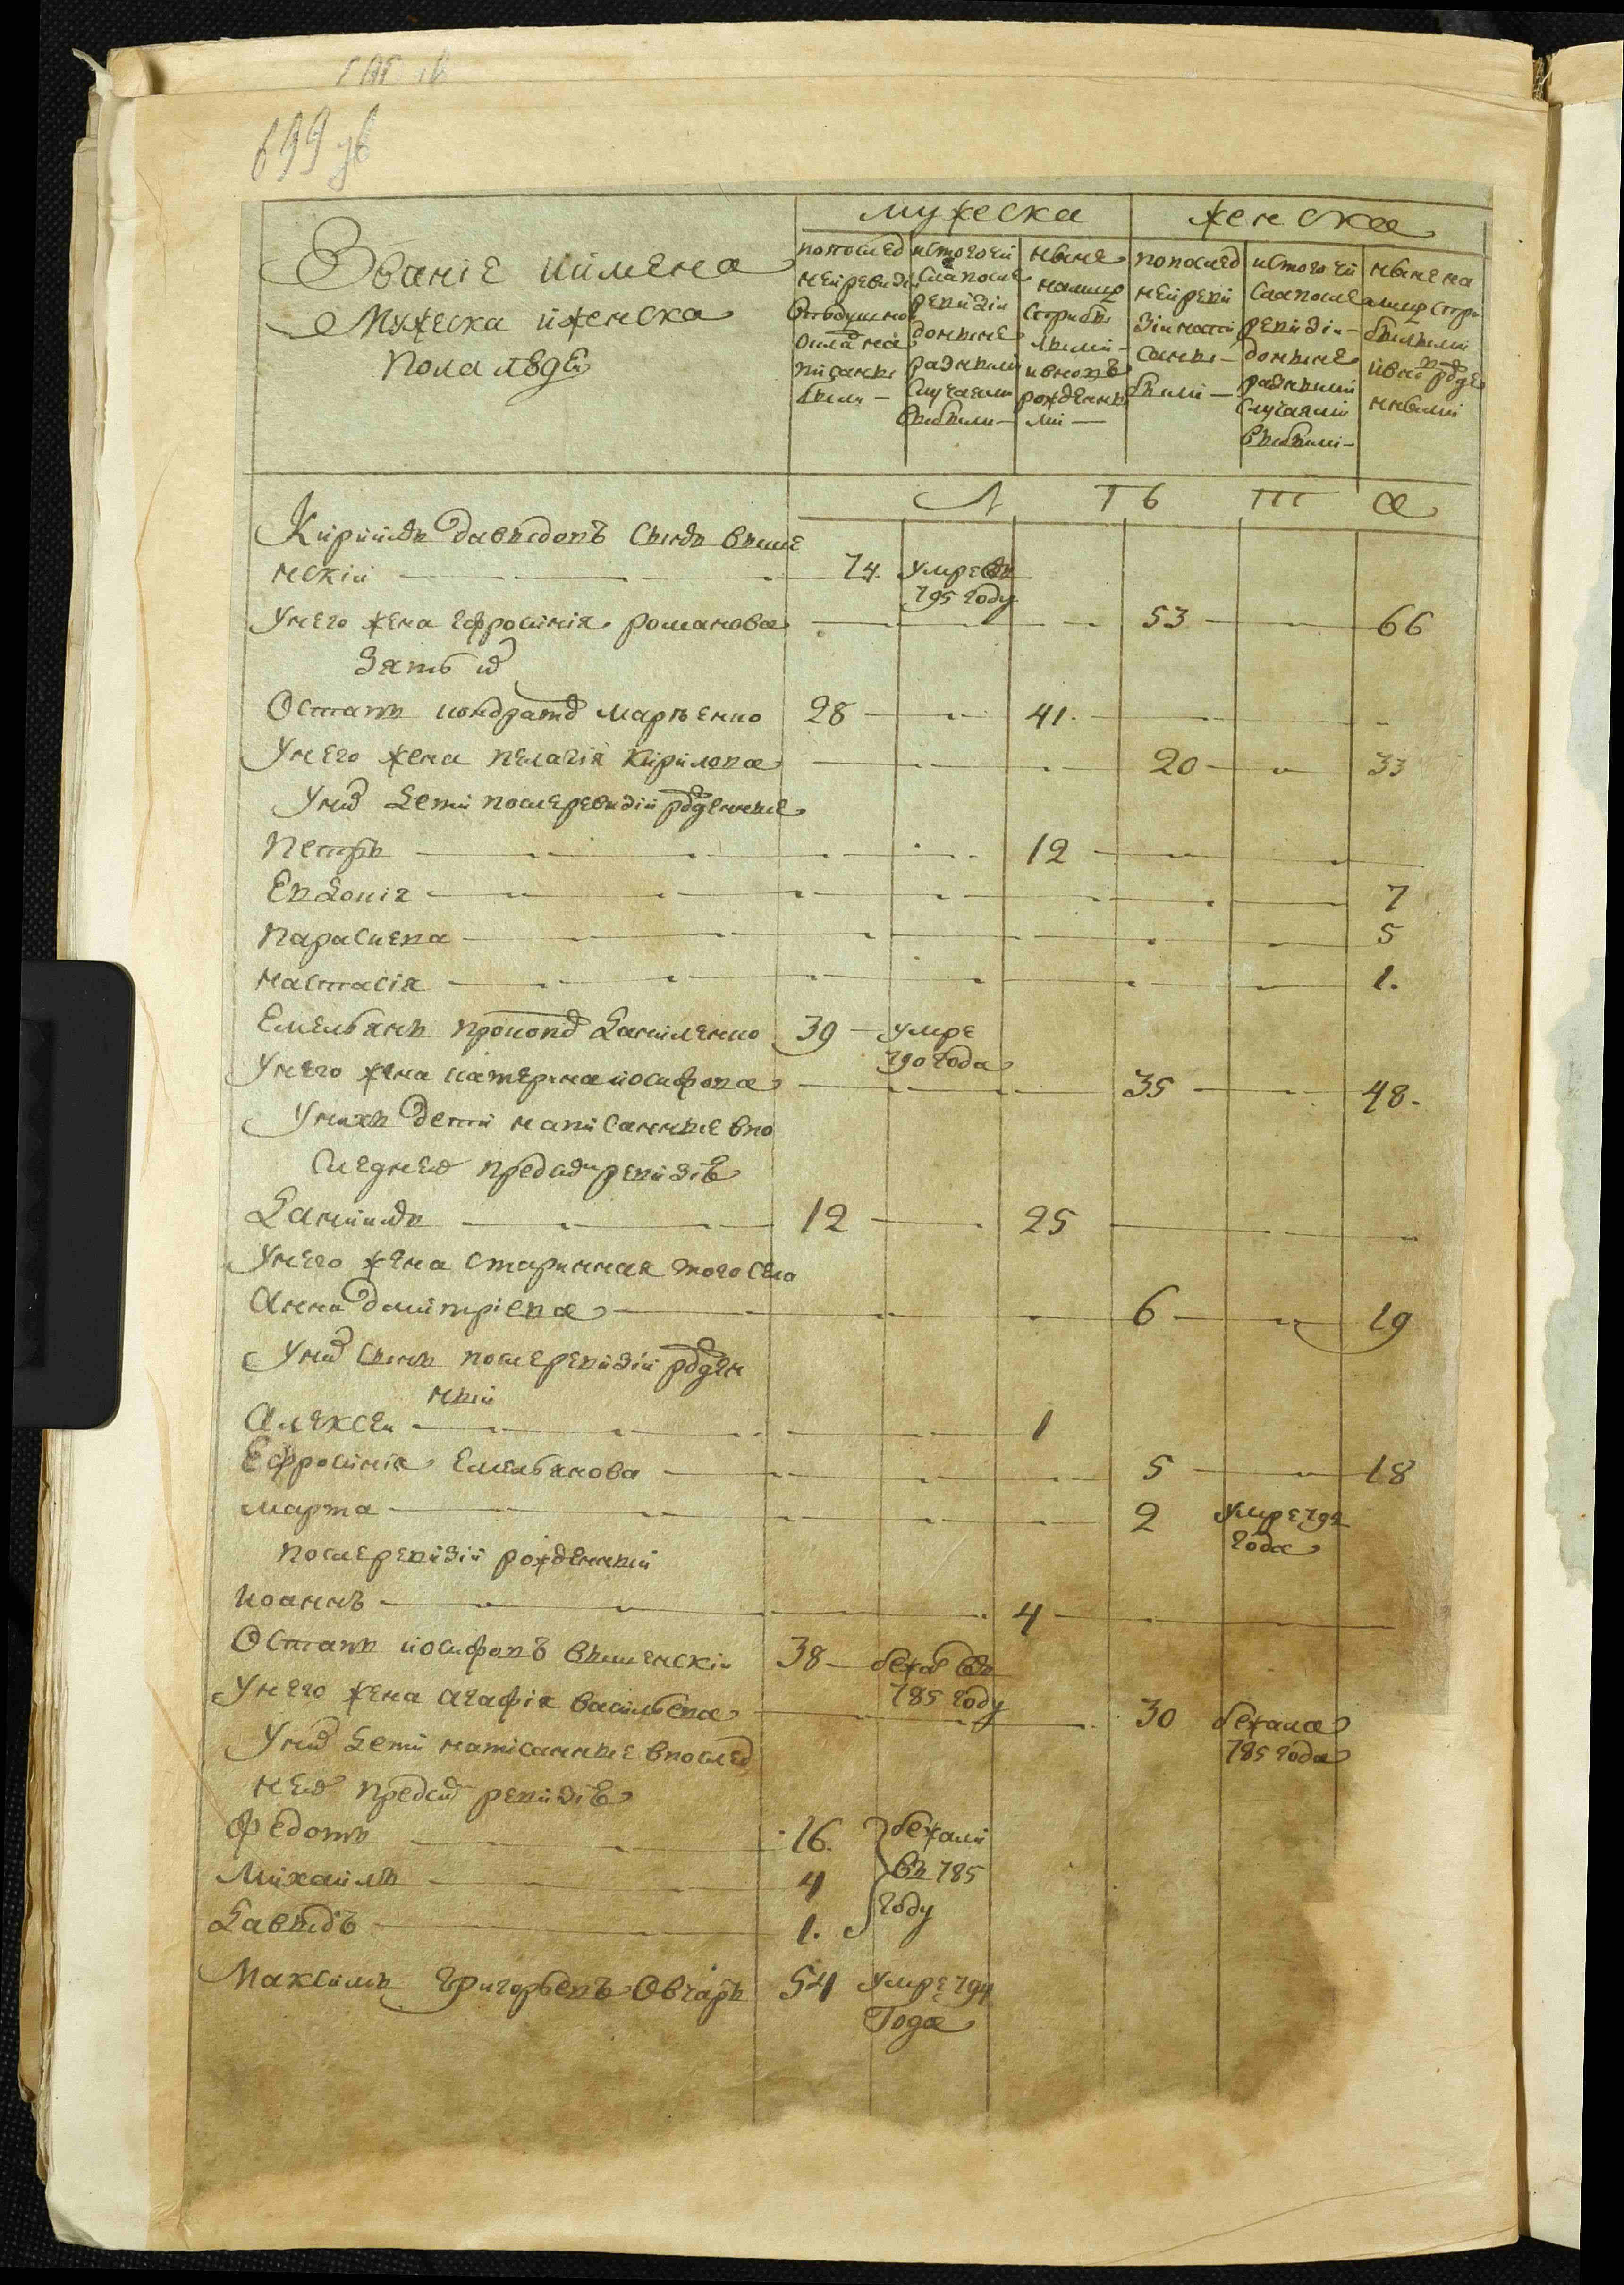 699 зв
мужеска женска
Званіе иимена
Мужеска иженска
пола людей
попослед
ней ревизіи
Вподушной
оклад на
писаны
были —
исътого чи
сла после
ревизіи
до ныне
разными
случаями
выбыли —
ныне
на лицо
старыми
и вновь
рожденны
ми —
попослед
ней реви
зіи напи
санны
были —
исътого чи
сла после
ревизіи —
до ныне
разными
случаями
выбыли —
ныне на
лицо
и вновь рожде
нными
Л Т Ъ Т А
Кирилъ Давыдовъ сынъ выше
нскій — 74. умре въ
795 году
Унего жена Ефросинія романова — 53 — 66
Зять их
Остапъ кондратов Марченко 28 — 41. —
Унего жена пелагія Кирилова — 20 — 33
Уних дети после ревизіи рожденные
Петръ — 12 —
Евдокия — 7
параскева — 5
настасія — 1.
Емельянъ прокопов Даниленко 39 — умре
790 года
Унего жена катерина иосифова — 35 — 48.
Унихъ дети написанные впо
следней пред сим ревизіе
Данила — 12 — 25 —
Унего жена старинная того села
Анна Дмитріева — 6 — 19
Уних сынъ после ревизіи рожден
ный
Алексей — 1
Ефросинія Емельянова — 5 — 18
марта — 2 умре 792
года
после ревизіи рожденный
иоаннъ — 4 —
Остапъ иосифовъ вышенскій 38 — бежал въ
785 году
Унего жена агафія васильева — 30 бежала
785 года
Уних дети написанные впослед
ней пред сим ревизіе
Федотъ — 16. бежали
Михаилъ — 4 въ 785
Давыдъ — 1. году
Максимъ Григорьевъ Овчаръ 54 умре 794
Года